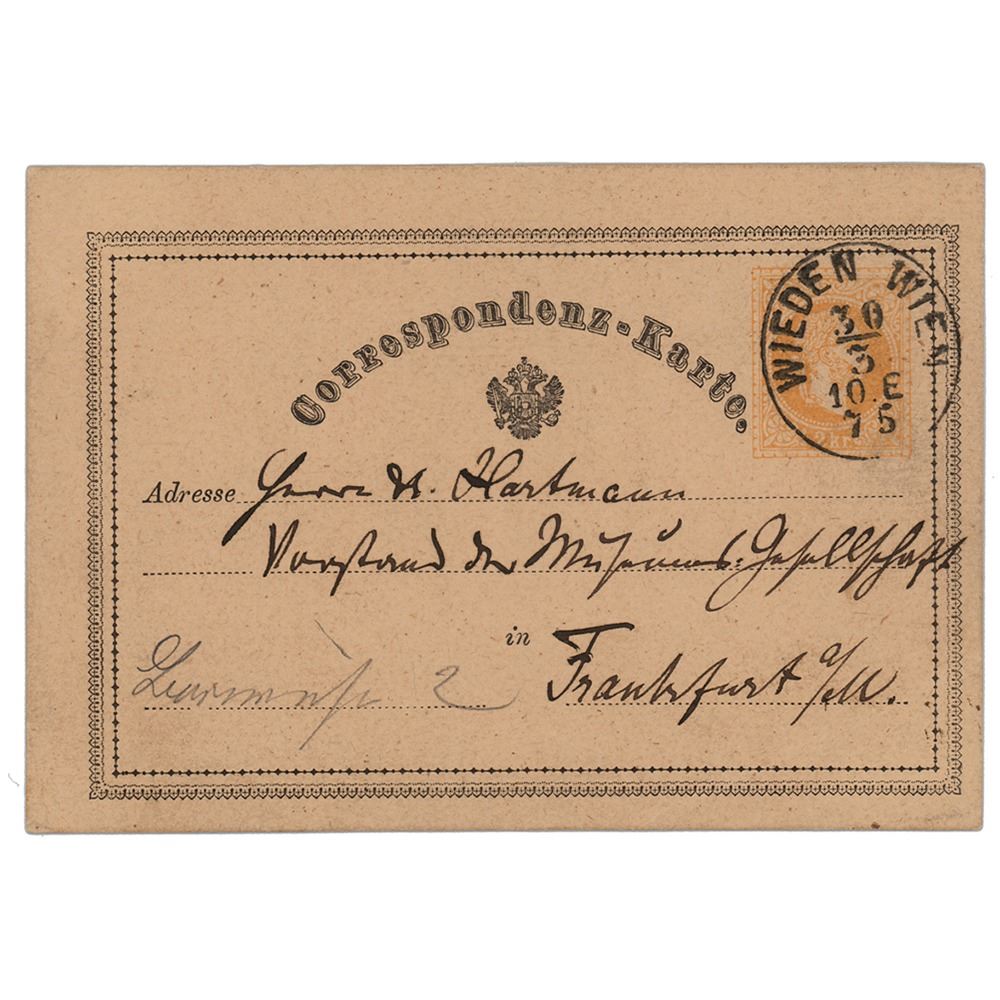 Correspondenz-Karte.
WIEDEN WIEN
30/3
10.E
75
2 kr
Adresse Herrn H. Hartmann
Vorstand der Museums-Gesellschaft
in Frankfurt a/M.
2